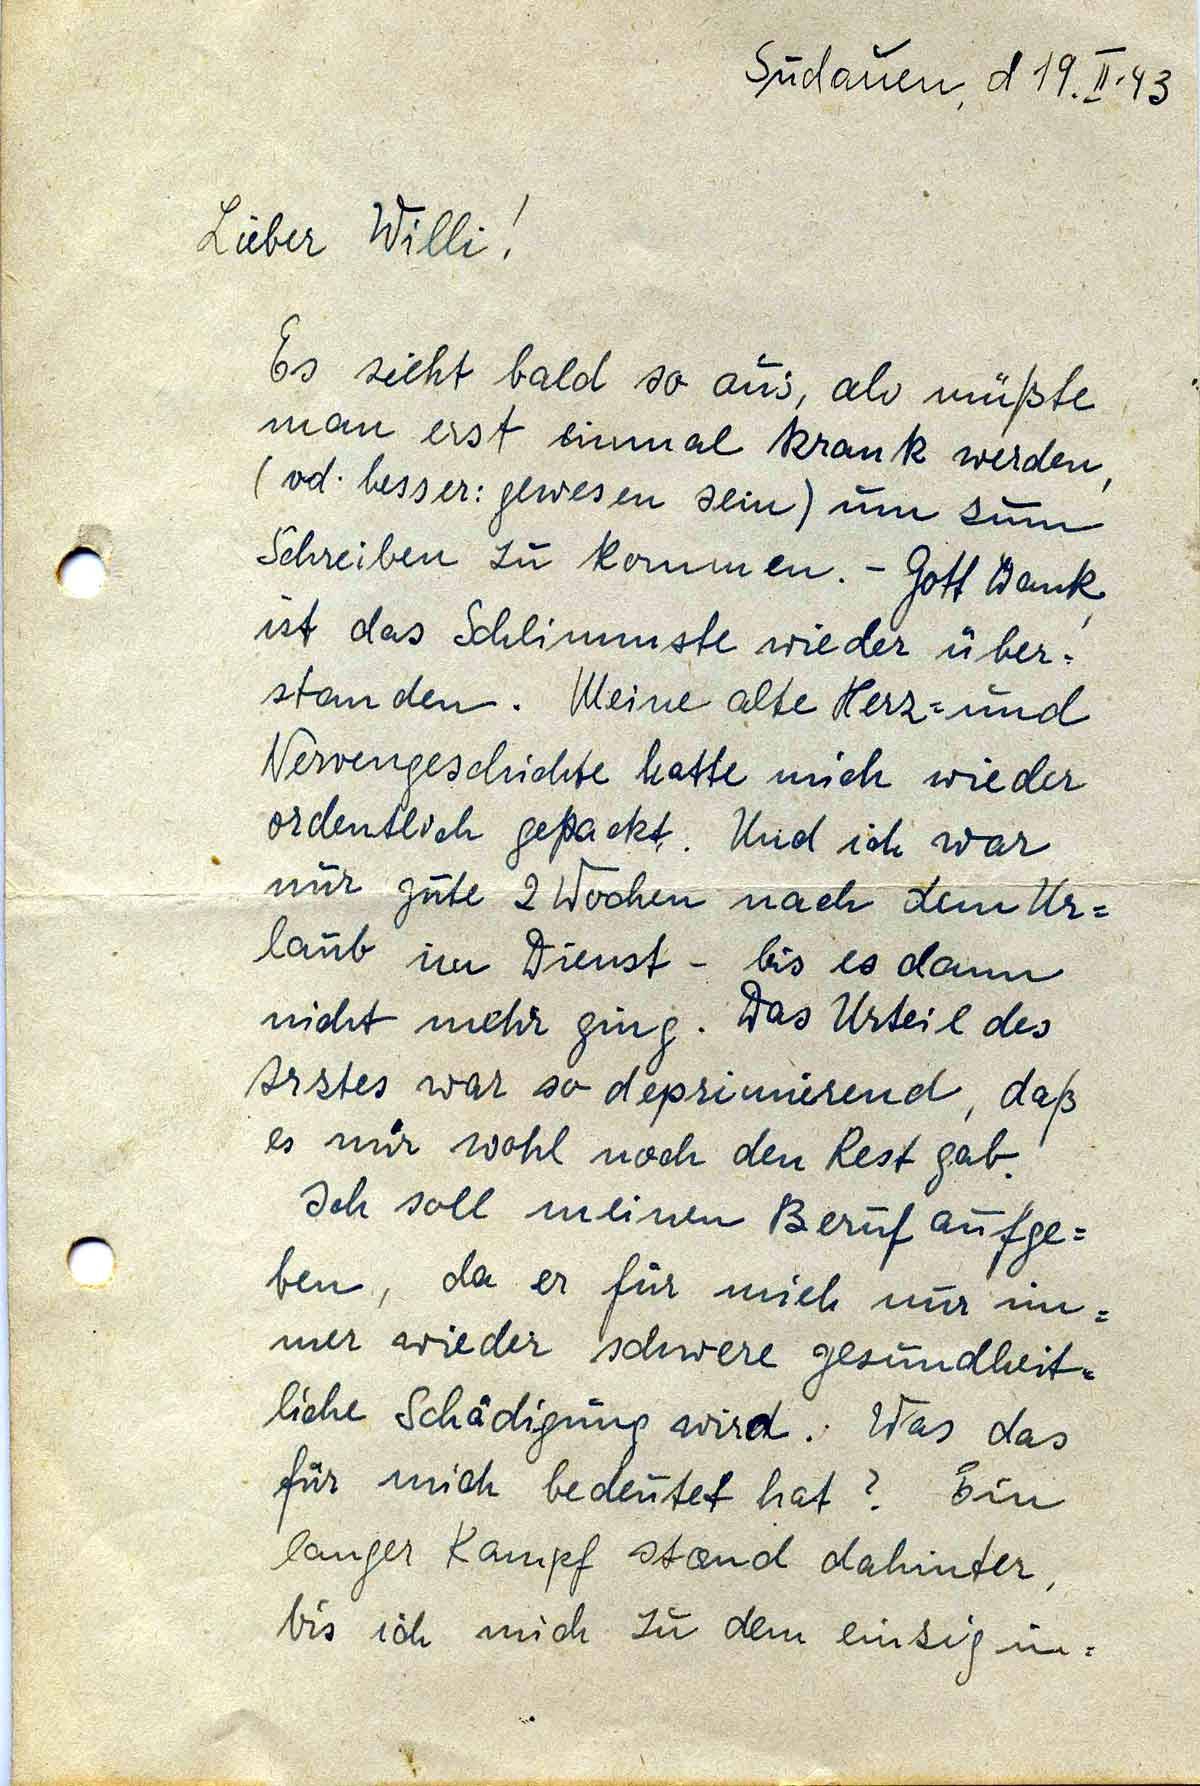 Sudauen, d 19.II.43
Lieber Willi!
Es sieht bald so aus, als müßte
man erst einmal krank werden,
(od. besser: gewesen sein) um zum
Schreiben zu kommen. - Gott Dank,
ist das Schlimmste wieder über=
standen. Meine alte Herz= und
Nervengeschichte hatte mich wieder
ordentlich gepackt. Und ich war
nur gute 2 Wochen nach dem Ur=
laub im Dienst - bis es dann
nicht mehr ging. Das Urteil des
Arztes war so deprimierend, daß
es mir wohl noch den Rest gab.
Ich soll meinen Beruf aufge=
ben, da er für mich nur im=
mer wieder schwere gesundheit=
liche Schädigung wird. Was das
für mich bedeutet hat? Ein
langer Kampf stand dahinter,
bis ich mich zu dem einzig in=